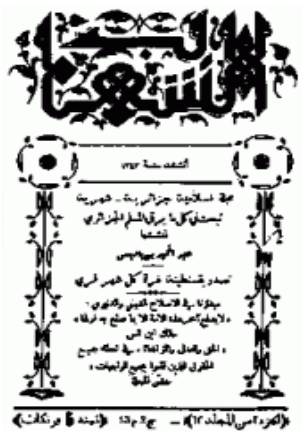 الشهاب
أنشئت سنة ١٣٤٣
مجلة إسلامية جزائرية - شهرية
تبحث في كل ما يرقي المسلم الجزائري
لمنشئها
عبد الحميد بن باديس
تصدر بقسنطينة غرة كل شهر قمري
مبدؤنا في الاصلاح الديني والدنيوي
«لا يصلح آخر هذه الأمة إلا بما صلح به أولها»
مالك ابن أنس
«الحق والعدل والمؤاخاة، في اعطاء جميع
الحقوق للذين قاموا بجميع الواجبات»